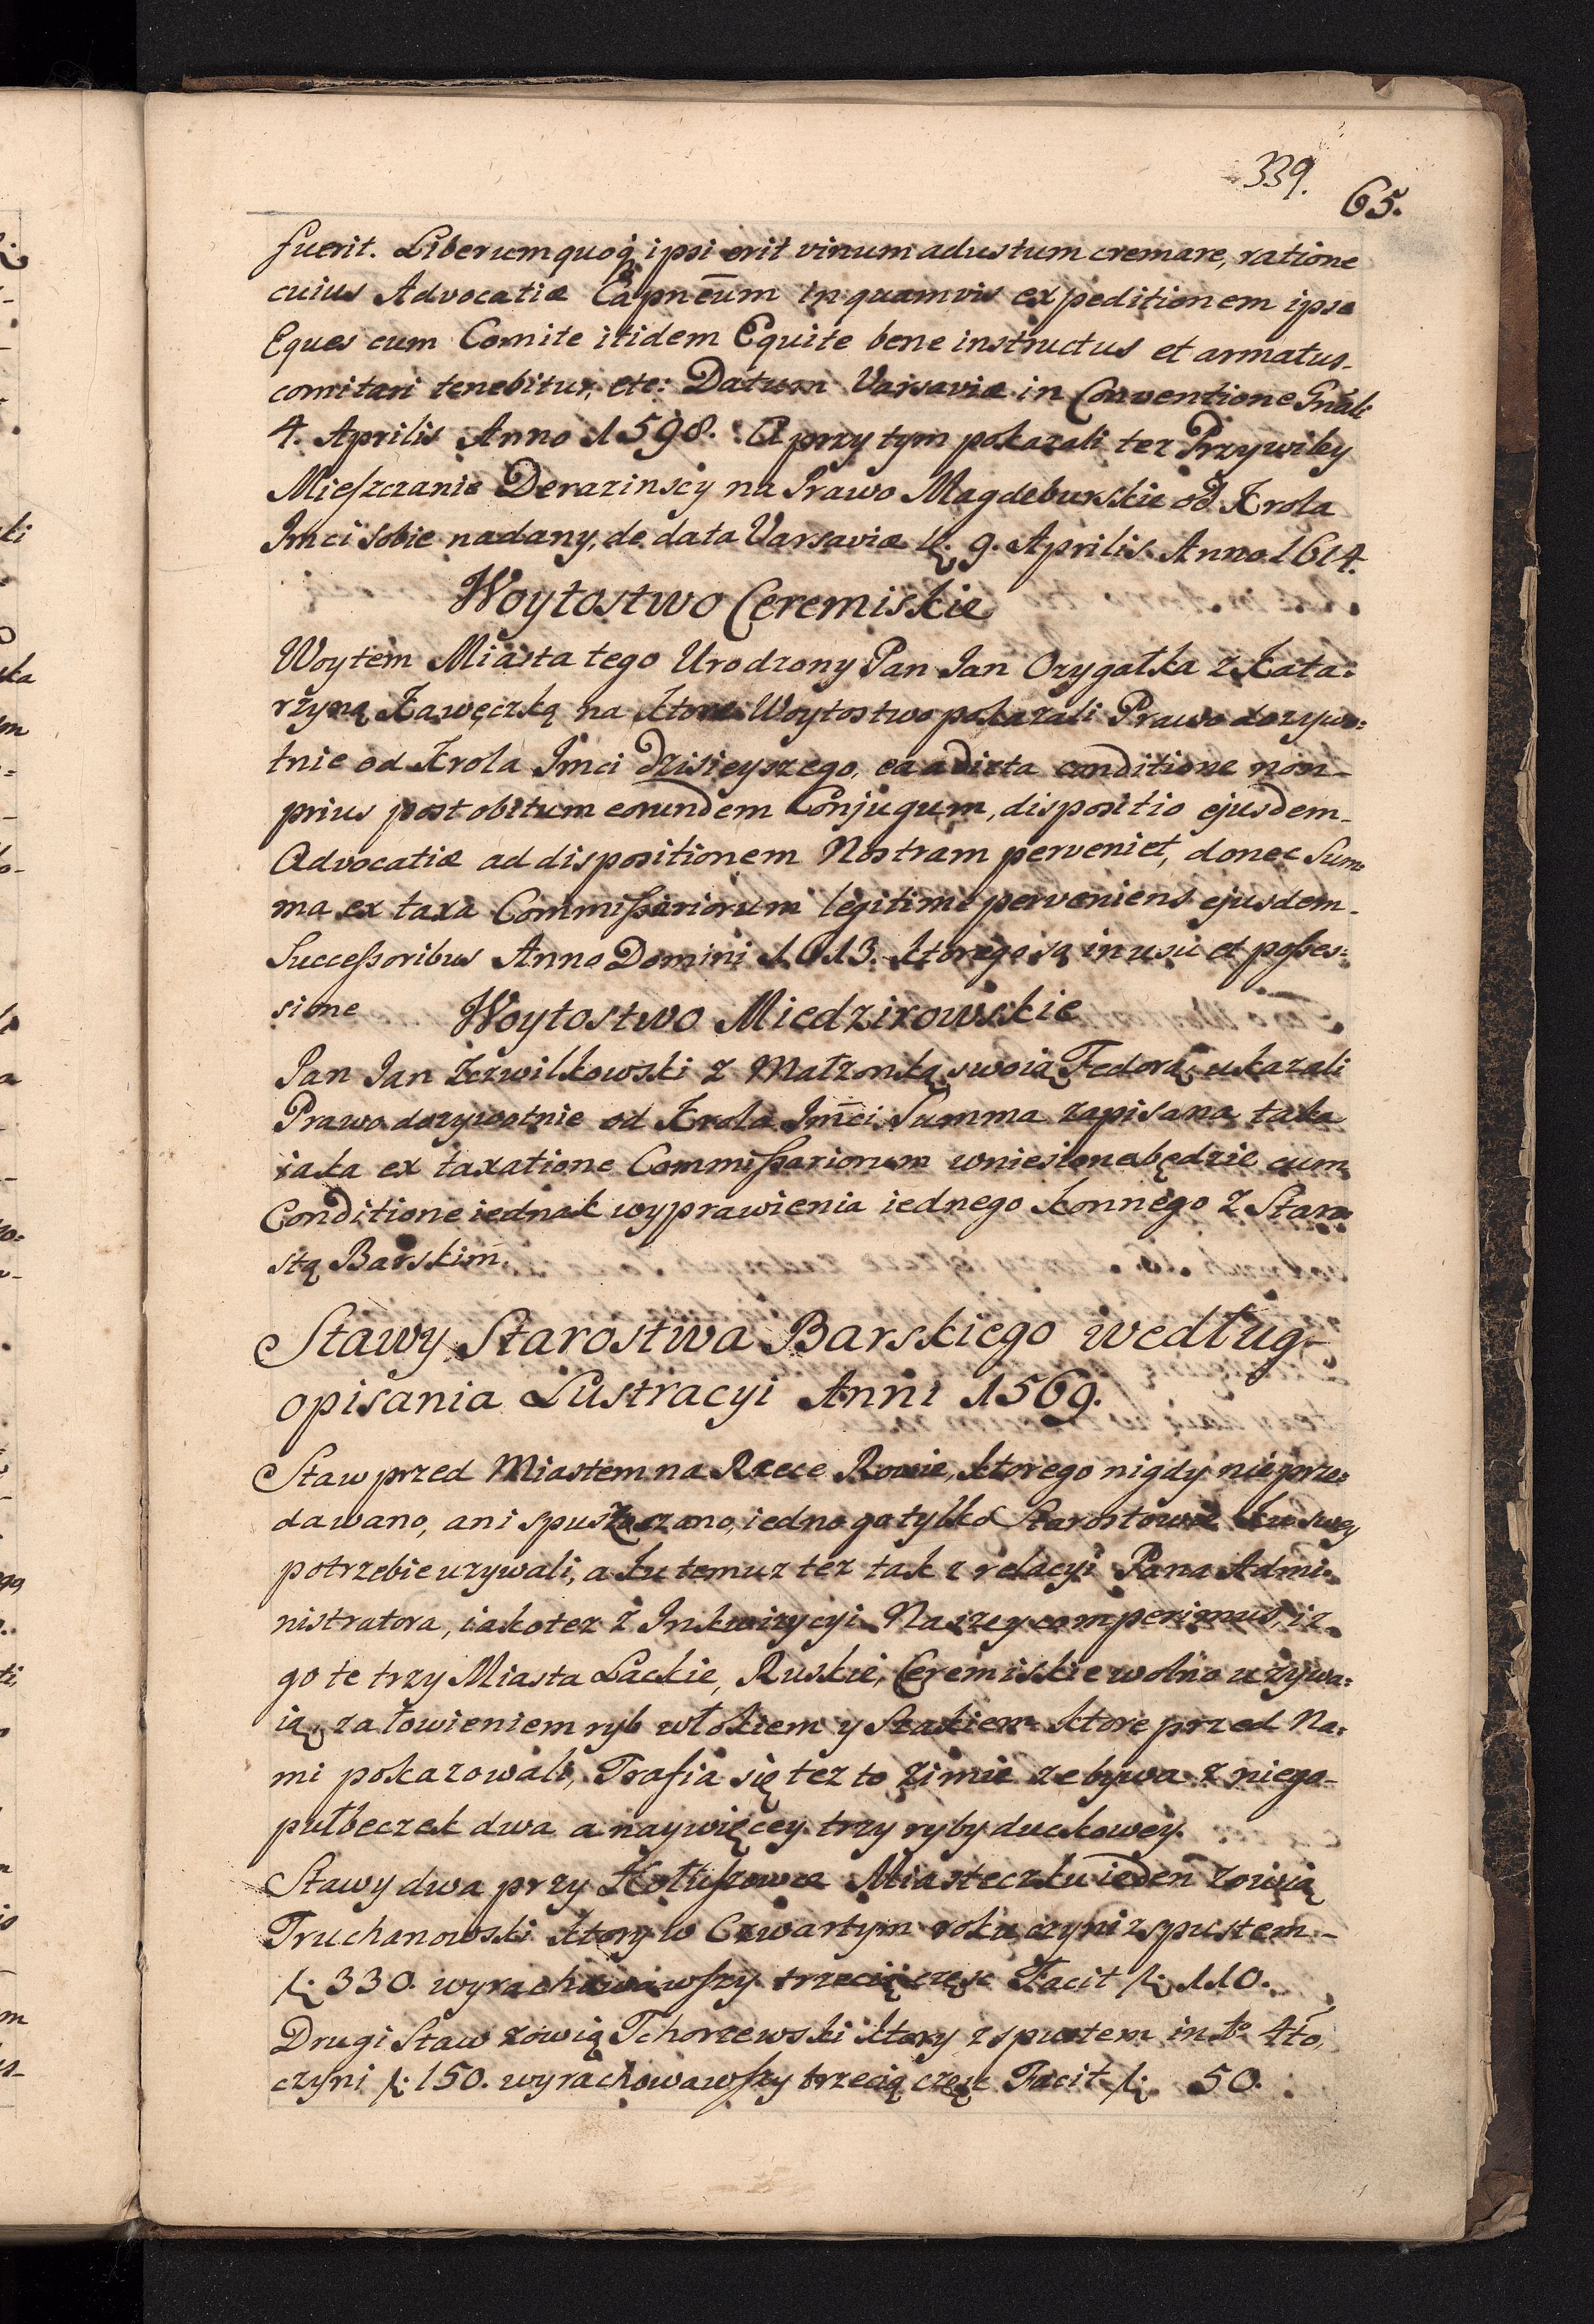 339. 65.
fuerit. Liberum quoq ipsi erit vinum adustum cremare, ratione
cuius Advocatiæ Capnēum in quamvis expeditionem ipse
Eques cum Comite itidem Equite bene instructus et armatus
comitari tenebitur, etc: Datum Varsaviæ in Conventione Gnāli
4. Aprilis Anno 1598. A przy tym pokazali tez Przywiley
Mieszczanie Derazinscy na Prawo Magdeburskie od Krola
Jmci sobie nadany, de data Varsaviæ 9. Aprilis Anno 1614.
Woytostwo Ceremiskie
Woytem Miasta tego Urodzony Pan Jan Ozygałka z Kata:
rżyną Kawęczką na ktore Woytostwo pokazali Prawo dozywo:
tnie od Krola Jmci dzisieyszego, ea adicta conditione non
prius post obitum eorundem Conjugum, dispositio ejusdem
Advocatiæ ad dispositionem Nostram perveniet, donec Sum:
ma ex taxa Commissariorum legitime perveniens ejusdem
Successoribus Anno Domini 1613. ktorego są in usu et posses:
sione
Woytostwo Miedzirowskie
Pan Jan Zezwilkowski z Małzonką swoią Fedorą ukazali
Prawo dozywotnie od Krola Jmci Summa zapisana taka
iaka ex taxatione Commissariorum wniesiona będzie cum
Conditione iednak wyprawienia iednego konnego z Staro:
stą Barskim.
Stawy Starostwa Barskiego według
opisania Lustracyi Anni 1569.
Staw przed Miastem na Rzece Rowie, ktorego nigdy nie prze:
dawano, ani spuszczano, iedno go tylko Starostowie ku swey
potrzebie uzywali, a ku temuz tez tak z relacyi Pana Admi:
nistratora, iako tez z Inkwizycyi Naszey comperimus, iz
go te trzy Miasta Lackie, Ruskie, Ceremiskie wolno uzywa:
ią, za łowieniem ryb włokiem y Sakiem ktore przed Na:
mi pokazowali, Trafia się tez to zimie ze bywa z niego
pułbeczek dwa a naywięcey trzy ryby duckowey.
Stawy dwa przy Kołuszowce Miasteczku ieden zowią
Truchanowski ktory w Czwartym roku czyni z spustem
330. wyrachowawszy trzecią częsc Facit 110.
Drugi Staw zowią Tchorzewski ktory z spustem in 4to
czyni 150. wyrachowawszy trzecią częsc Facit 50.